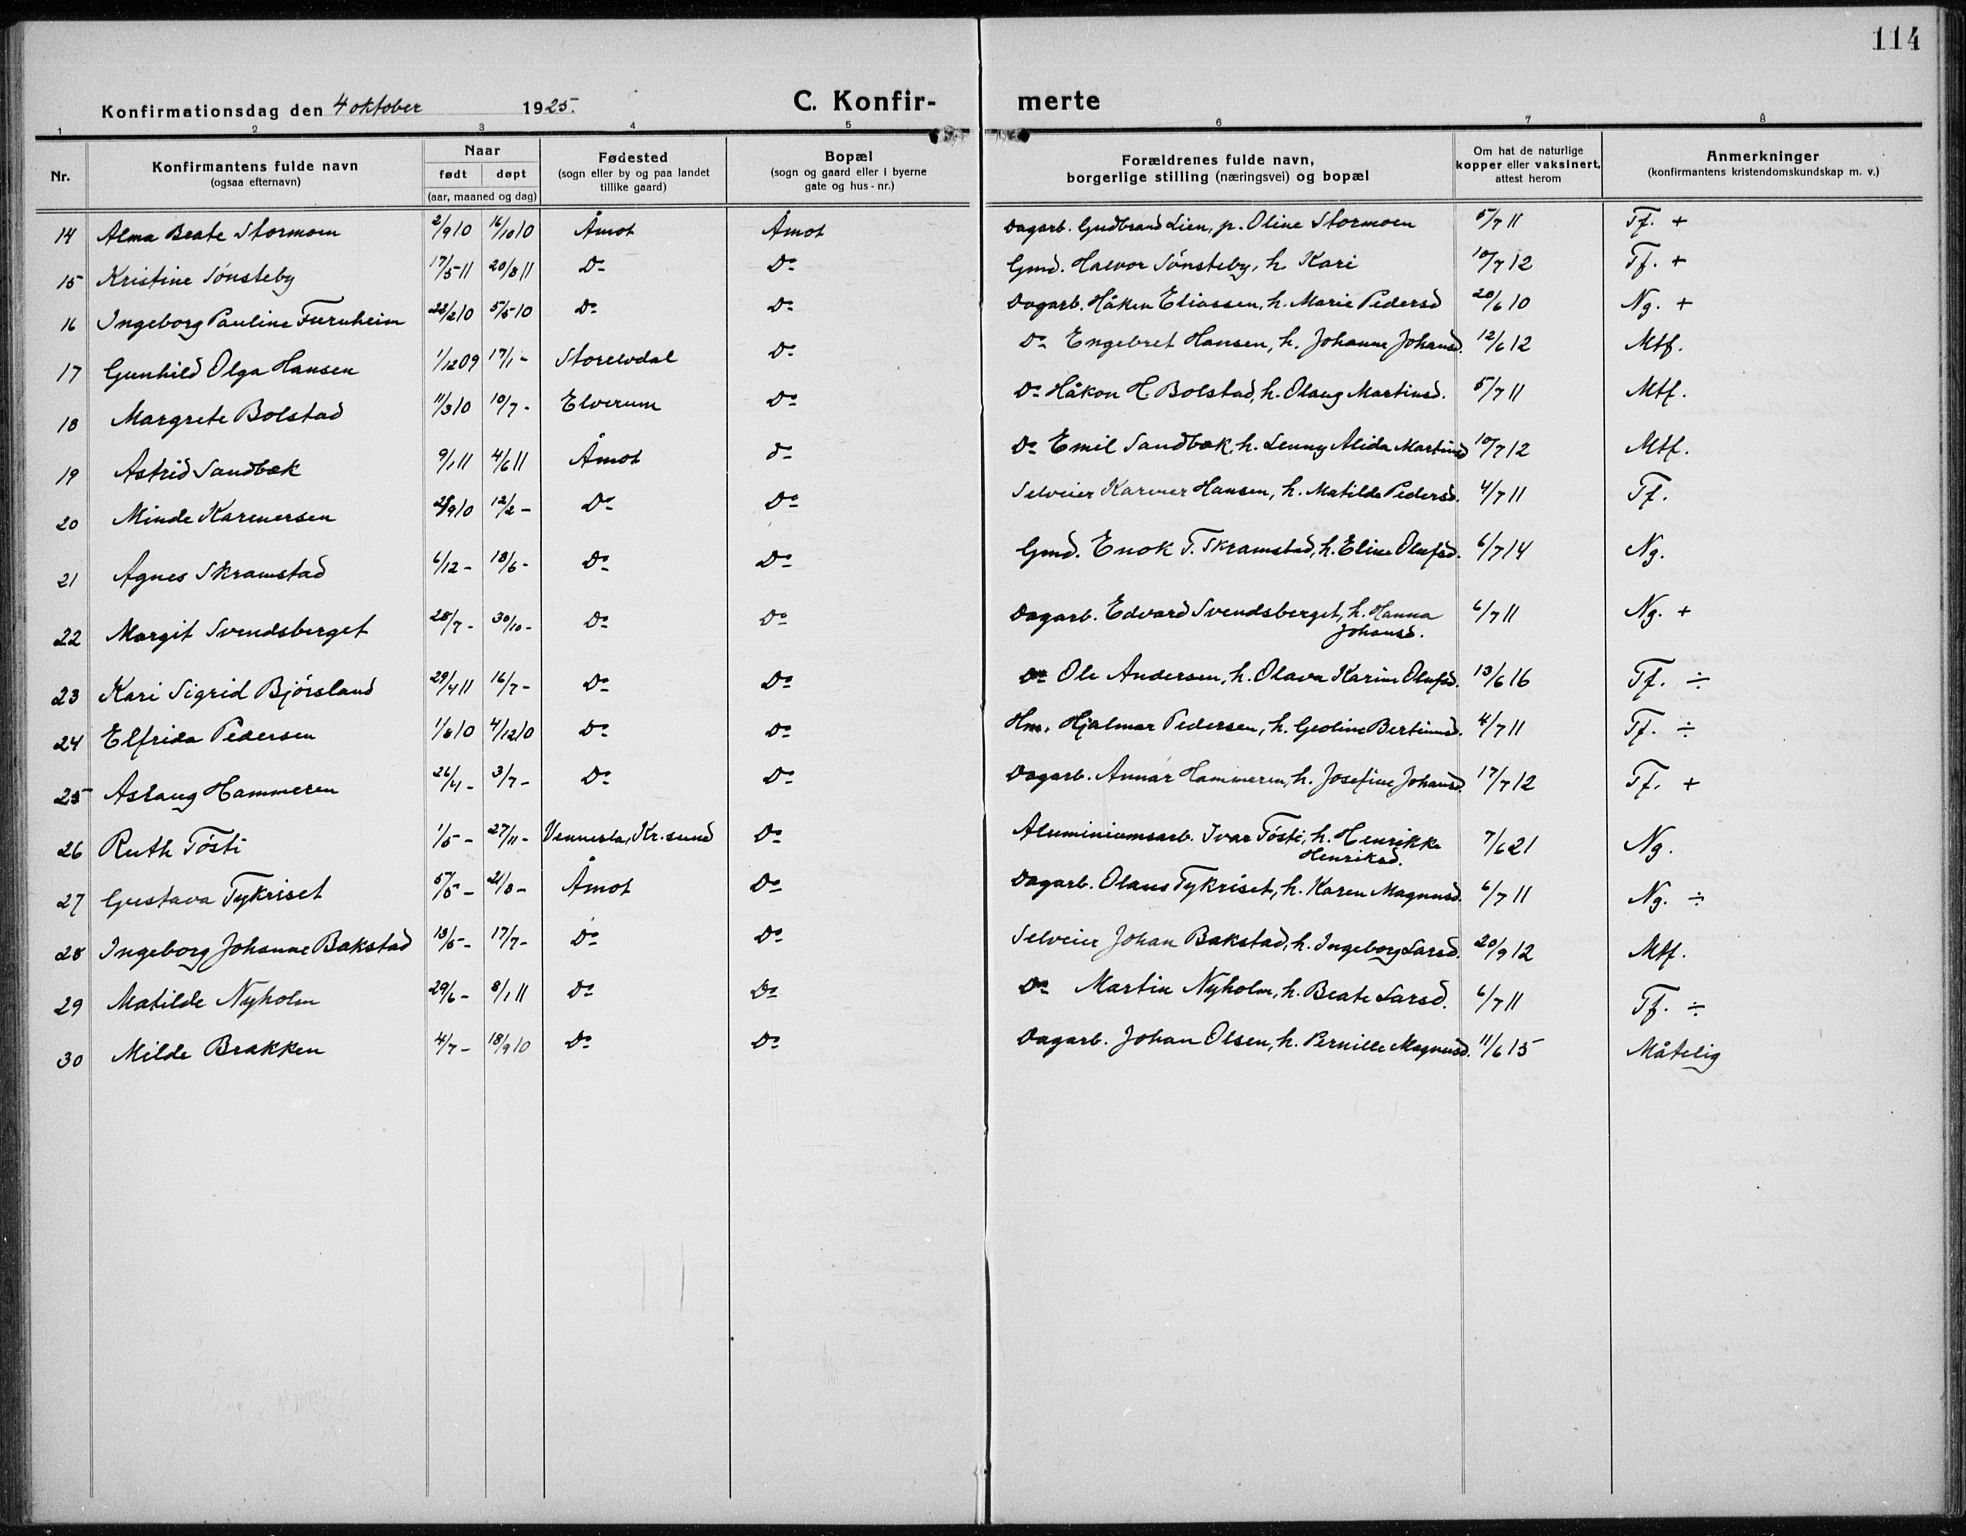 114
Konfirmationsdag den 4 oktober 1925.
C. Konfir-
merte
1 2 3 4 5 6 7 8
Nr.
Konfirmantens fulde navn
(ogsaa efternavn)
Naar
født døpt
(aar, maaned og dag)
Fødested
(sogn eller by og paa landet
tillike gaard)
Bopæl
(sogn og gaard eller i byerne
gate og hus-nr.)
Forældrenes fulde navn,
borgerlige stilling (næringsvei) og bopæl
Om hat de naturlige
kopper eller vaksinert,
attest herom
Anmerkninger
(konfirmantens kristendomskundskap m. v.)
14 Alma Beate Stormoen 2/9 10 16/10 10 Åmot Åmot Dagarb. Gudbrand Lien, p. Oline Stormoen 5/7 11 Tf. +
15 Kristine Sønsteby 17/5 11 20/8 11 Do Do Gmd. Halvor Sønsteby, h. Kari 10/7 12 Tf. +
16 Ingeborg Pauline Furuheim 22/2 10 5/5 10 Do Do Dagarb. Håken Eliassen, h. Marie Pedersd 20/6 10 Ng. +
17 Gunhild Olga Hansen 1/12 09 17/1 - Storelvdal Do Do Engebret Hansen, h. Johanne Johansd. 12/6 12 Mtf.
18 Margrete Bolstad 11/3 10 10/7 - Elverum Do Do Håkon H. Bolstad, h. Olaug Martinsd. 5/7 11 Mtf.
19 Astrid Sandbæk 9/1 11 4/6 11 Åmot do Do Emil Sandbæk, h. Lenny Alida Martinsd 10/7 12 Mtf.
20 Minde Karenersen 28/9 10 12/2 - Do Do Selveier Karener Hansen, h. Matilde Pedersd. 4/7 11 Tf.
21 Agnes Skramstad 6/12 - 18/6 - Do Do Gmd. Enok T. Skramstad, h. Eline Olufsd. 6/7 14 Ng.
22 Margit Svendsberget 28/7 - 30/10 - Do Do Dagarb. Edvard Svendsberget, h. Hanna 6/7 11 Ng. +
Johansd.
23 Kari Sigrid Bjørsland 29/4 11 16/7 - Do Do Do Ole Andersen, h. Olava Karine Olufsd. 13/6 16 Tf. ÷
24 Elfrida Pedersen 1/8 10 4/12 10 Do Do Hm. Hjalmar Pedersen, h. Geoline Bertinusd. 4/7 11 Tf. ÷
25 Aslaug Hammeren 26/4 - 3/7 - Do Do Dagarb. Annar Hammeren, h. Josefine Johansd. 17/7 12 Tf. +
26 Ruth Tøsti 1/5 - 27/11 - Vennesla, Kr.sund Do Aluminiumsarb. Ivar Tøsti, h. Henrikke 7/6 21 Ng.
Henriksd.
27 Gustava Tykriset 5/5 - 21/8 - Åmot Do Dagarb. Olaus Tykriset, h. Karen Magnusd. 6/7 11 Ng. ÷
28 Ingeborg Johanne Bakstad 13/5 - 17/7 - Do Do Selveier Johan Bakstad, h. Ingeborg Larsd. 20/9 12 Mtf.
29 Matilde Nyholm 29/6 - 8/1 11 Do Do Do Martin Nyholm, h. Beate Larsd. 6/7 11 Tf. ÷
30 Milde Brakken 4/7 - 18/9 10 Do Do Dagarb. Johan Olsen, h. Pernille Magnusd. 11/6 15 Måtelig